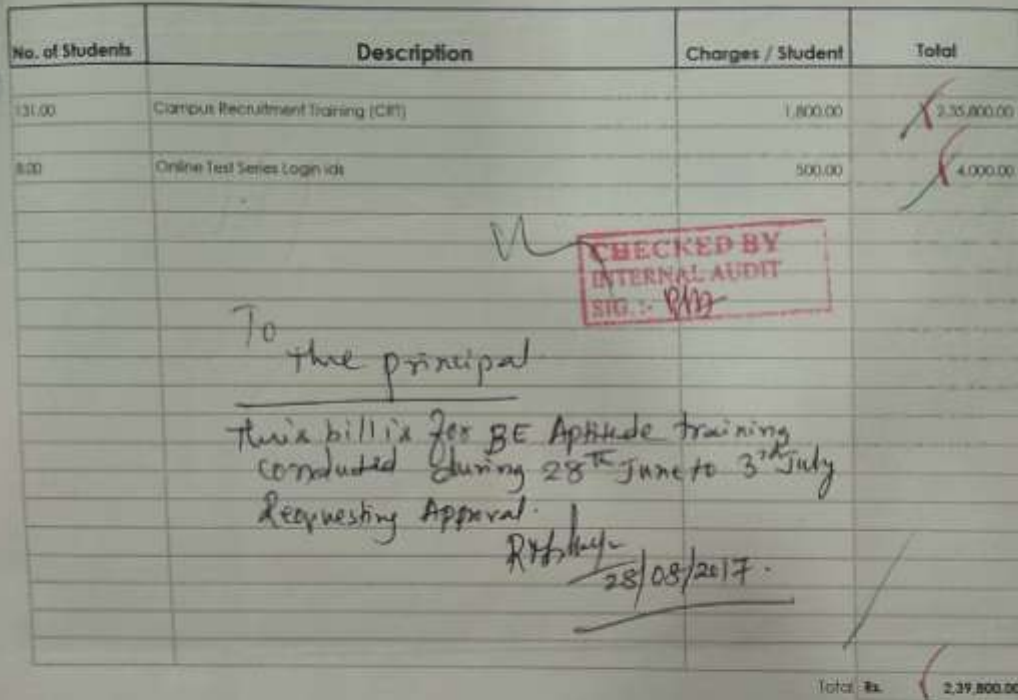 No. of Students Description Charges / Student Total
131.00 Campus Recruitment Training (CRT) 1,800.00 2,35,800.00
8.00 Online Test Series Login ids 500.00 4,000.00
CHECKED BY
INTERNAL AUDIT
SIG. :-
To
the principal
This bill is for BE Aptitude training
conducted during 28th June to 3rd July
Requesting Approval.
28/08/2017.
Total Rs. 2,39,800.00